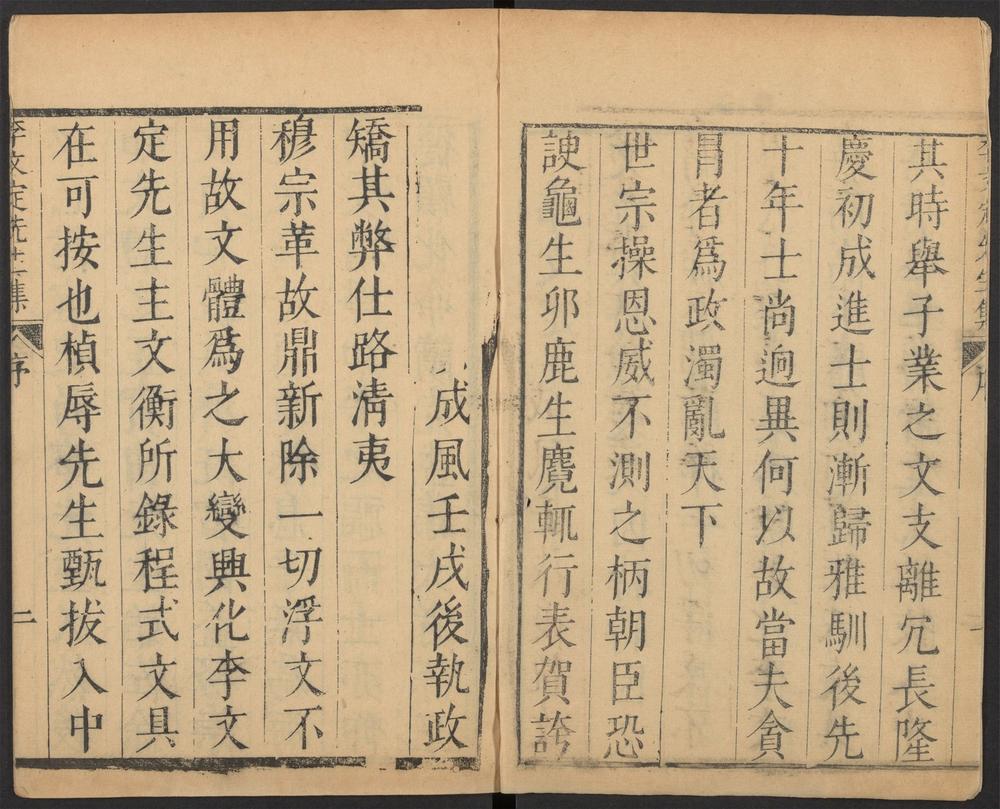 其時舉子業之文支離冗長隆
慶初成進士則漸歸雅馴後先
十年士尚逈異何以故當夫貪
冒者爲政濁亂天下
世宗操恩威不測之柄朝臣恐
諛龜生卵鹿生麑輒行表賀誇
成風壬戌後執政
矯其弊仕路清夷
穆宗革故鼎新除一切浮文不
用故文體爲之大變興化李文
定先生主文衡所錄程式文具
在可按也楨辱先生甄拔入中
李文定先生集
序
二